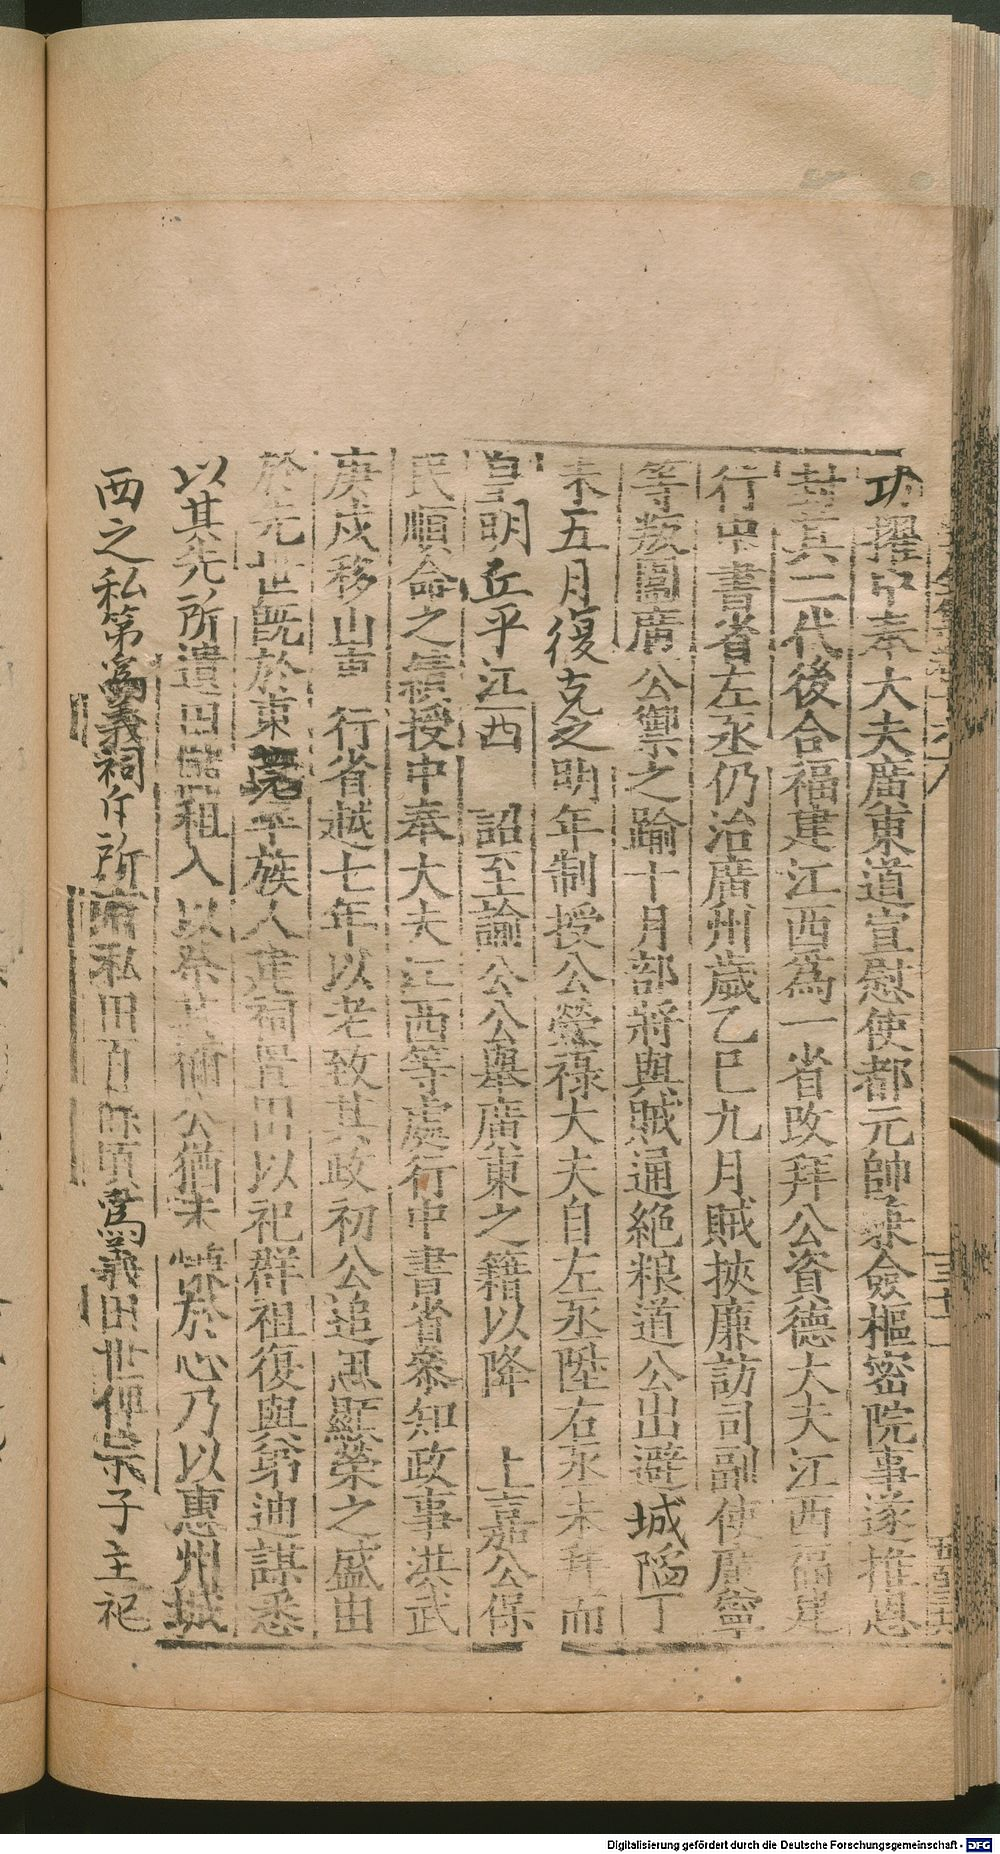 功擢中奉大夫廣東道宣慰使都元帥兼僉樞密院事遂推恩
封其二代後合福建江西為一省改拜公資德大夫江西福建
行中書省左丞仍治廣州歲乙巳九月賊挾廉訪司副使廣寧
等叛圖廣公禦之踰十月部將與賊通絶粮道公出避城陷丁
未五月復克之明年制授公榮祿大夫自左丞陞右丞未拜而
皇明兵平江西 詔至諭公公舉廣東之籍以降 上嘉公保
民順命之績授中奉大夫江西等處行中書省叅知政事洪武
庚戌移山東 行省越七年以老致其政初公追思顯榮之盛由
於先世既於東莞平族人建祠置田以祀群祖復與弟迪謀悉
以其先所遺田租入以祭其禰公猶未慊於心乃以惠州城
西之私第為義祠斥所有私田百餘頃為義田世俾宗子主祀
三十一
五百三十六
Digitalisierung gefördert durch die Deutsche Forschungsgemeinschaft - DFG